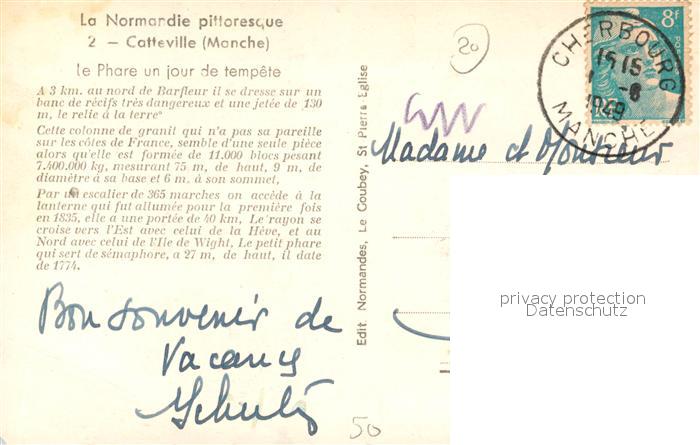 La Normandie pittoresque
2 — Catteville (Manche)
Le Phare un jour de tempête
A 3 km. au nord de Barfleur il se dresse sur un
banc de récifs très dangereux et une jetée de 130
m, le relie à la terre
Cette colonne de granit qui n'a pas sa pareille
sur les côtes de France, semble d'une seule pièce
alors qu'elle est formée de 11.000 blocs pesant
7.400.000 kg, mesurant 75 m, de haut, 9 m, de
diamètre à sa base et 6 m. à son sommet,
Par un escalier de 365 marches on accède à la
lanterne qui fut allumée pour la première fois
en 1835, elle a une portée de 40 km, Le rayon se
croise vers l'Est avec celui de la Hève, et au
Nord avec celui de l'Ile de Wight, Le petit phare
qui sert de sémaphore, a 27 m, de haut, il date
de 1774.
Bon souvenir de
Vacances
Schultz
Edit Normandes, Le Coubey, St Pierre Eglise
20
8f
CHERBOURG
15 15
-8
1949
MANCHE
Madame et Monsieur
privacy protection
Datenschutz
50